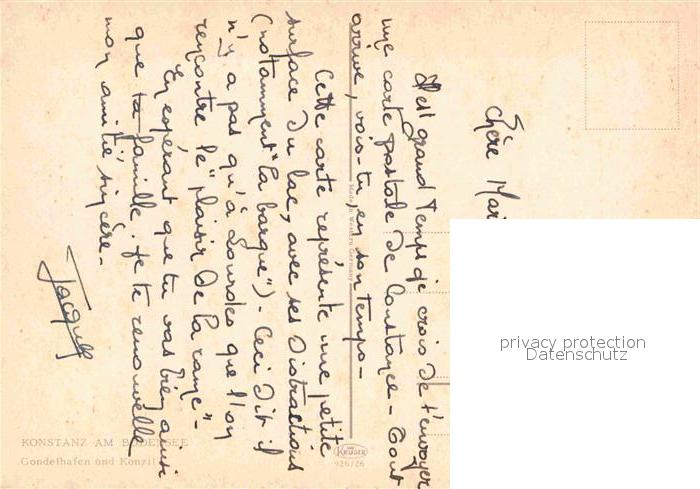 Chère Mar
Il est grand temps je crois de t'envoyer
une carte postale de Constance - Tout
arrive, vois-tu, en son temps -
Cette carte représente une petite
surface du lac, avec ses distractions
(notamment "la barque") - Ceci dit il
n'y a pas qu'à Lourdes que l'on
rencontre le "plaisir de la rame" -
En espérant que tu vas bien ainsi
que ta famille. je te renouvelle
mon amitié sincère -
Jacques
KONSTANZ AM BODENSEE
Gondelhafen und Konzil
Made in Western Germany
KRÜGER
926/26
privacy protection
Datenschutz